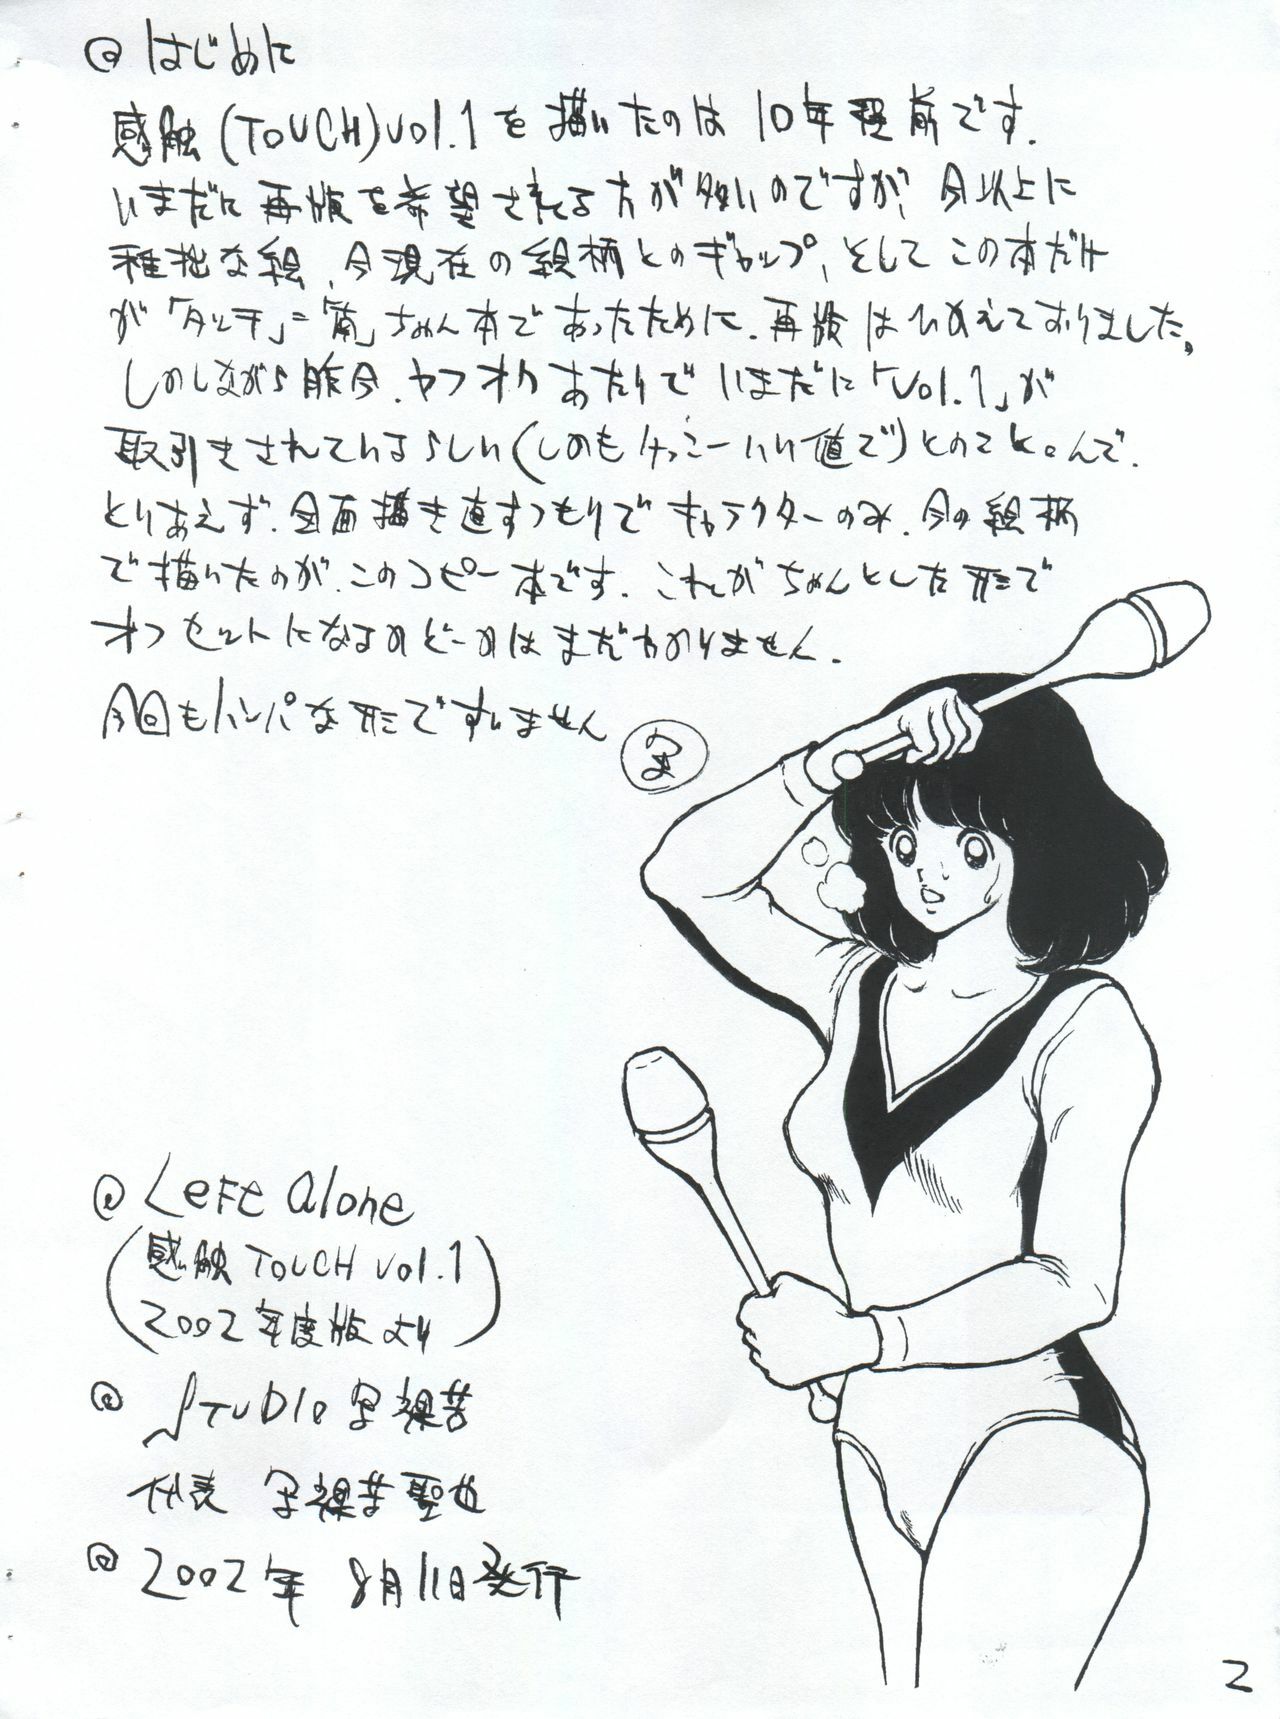 @ はじめに
感触(TOUCH)vol.1を描いたのは10年程前です.
いまだに再版を希望される方が多いのですが、今以上に
稚拙な絵、今現在の絵柄とのギャップ、そしてこの本だけ
が「タッチ」=「南」ちゃん本であったために、再販はひかえておりました。
しかしながら昨今、ヤフオクあたりでいまだに「Vol.1」が
取引きされているらしい(しかもけっこーいい値で)とのことなんで.
とりあえず、全面描き直すつもりでキャラクターのみ、今の絵柄
で描いたのが、このコピー本です. これがちゃんとした形で
オフセットになるかどーかはまだわかりません.
今回もハンパな形ですいません
@ Left Alone
(感触 TOUCH vol.1
2002年度版より)
@ STUDIO 写裸苦
代表 写裸苦聖也
@ 2002年 8月11日発行
2